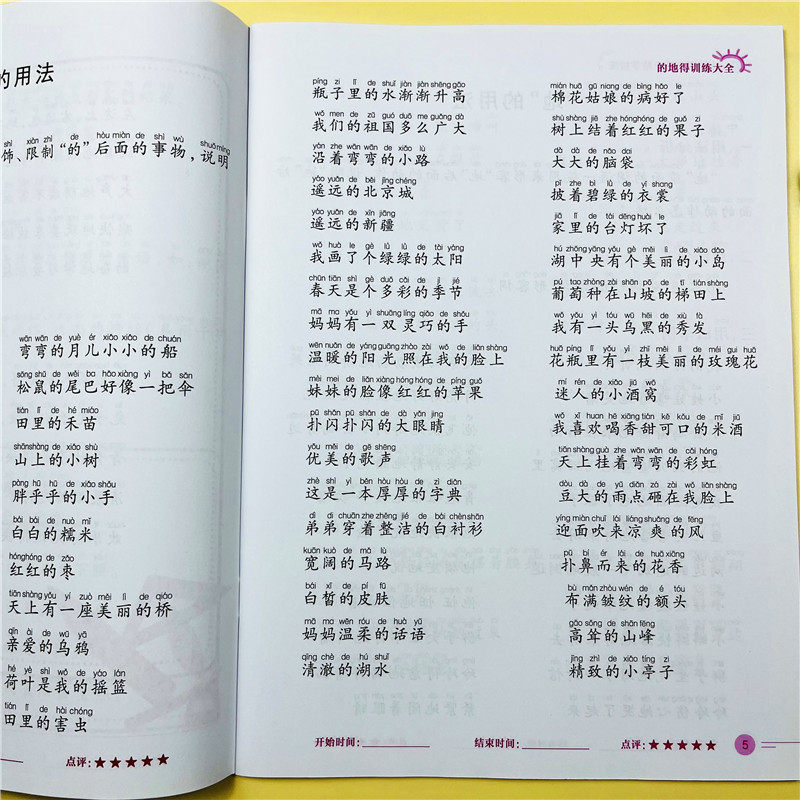 的用法
shì xiàn zhì de hòu miàn de shì wù shuōmíng
饰、限制“的”后面的事物,说明
wān wān de yuè ér xiǎo xiǎo de chuán
弯弯的月儿小小的船
sōng shǔ de wěi ba hǎo xiàng yì bǎ sǎn
松鼠的尾巴好像一把伞
tián lǐ de hé miáo
田里的禾苗
shānshàng de xiǎo shù
山上的小树
pàng hū hū de xiǎo shǒu
胖乎乎的小手
bái bái de nuò mǐ
白白的糯米
hónghóng de zǎo
红红的枣
tiān shàng yǒu yí zuò měi lì de qiáo
天上有一座美丽的桥
qīn ài de wū yā
亲爱的乌鸦
hé yè shì wǒ de yáo lán
荷叶是我的摇篮
tián lǐ de hài chóng
田里的害虫
点评:★★★★★
的地得训练大全
píng zi lǐ de shuǐ jiàn jiàn shēng gāo
瓶子里的水渐渐升高
wǒ men de zǔ guó duō me guǎng dà
我们的祖国多么广大
yán zhe wān wān de xiǎo lù
沿着弯弯的小路
yáo yuǎn de běi jīng chéng
遥远的北京城
yáo yuǎn de xīn jiāng
遥远的新疆
wǒ huà le gè lǜ lǜ de tài yáng
我画了个绿绿的太阳
chūn tiān shì gè duō cǎi de jì jié
春天是个多彩的季节
mā ma yǒu yì shuāng líng qiǎo de shǒu
妈妈有一双灵巧的手
wēn nuǎn de yáng guāng zhào zài wǒ de liǎn shàng
温暖的阳光照在我的脸上
mèi mei de liǎn xiàng hóng hóng de píng guǒ
妹妹的脸像红红的苹果
pū shǎn pū shǎn de dà yǎn jing
扑闪扑闪的大眼睛
yōu měi de gē shēng
优美的歌声
zhè shì yì běn hòu hòu de zì diǎn
这是一本厚厚的字典
dì di chuān zhe zhěng jié de bái chèn shān
弟弟穿着整洁的白衬衫
kuān kuò de mǎ lù
宽阔的马路
bái xī de pí fū
白皙的皮肤
mā ma wēn róu de huà yǔ
妈妈温柔的话语
qīng chè de hú shuǐ
清澈的湖水
mián huā gū niang de bìng hǎo le
棉花姑娘的病好了
shù shàng jiē zhe hóng hóng de guǒ zi
树上结着红红的果子
dà dà de nǎo dai
大大的脑袋
pī zhe bì lǜ de yī shang
披着碧绿的衣裳
jiā lǐ de tái dēng huài le
家里的台灯坏了
hú zhōng yāng yǒu gè měi lì de xiǎo dǎo
湖中央有个美丽的小岛
pú tao zhòng zài shān pō de tī tián shàng
葡萄种在山坡的梯田上
wǒ yǒu yì tóu wū hēi de xiù fà
我有一头乌黑的秀发
huā píng lǐ yǒu yì zhī měi lì de méi gui huā
花瓶里有一枝美丽的玫瑰花
mí rén de xiǎo jiǔ wō
迷人的小酒窝
wǒ xǐ huan hē xiāng tián kě kǒu de mǐ jiǔ
我喜欢喝香甜可口的米酒
tiān shàng guà zhe wān wān de cǎi hóng
天上挂着弯弯的彩虹
dòu dà de yǔ diǎn zá zài wǒ liǎn shàng
豆大的雨点砸在我脸上
yíng miàn chuī lái liáng shuǎng de fēng
迎面吹来凉爽的风
pū bí ér lái de huā xiāng
扑鼻而来的花香
bù mǎn zhòu wén de é tóu
布满皱纹的额头
gāo sǒng de shān fēng
高耸的山峰
jīng zhì de xiǎo tíng zi
精致的小亭子
开始时间: 结束时间: 点评:★★★★★ 5